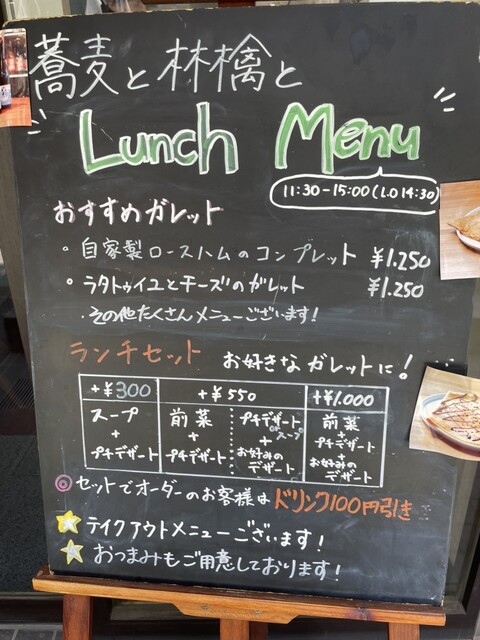 蕎麦と林檎と
Lunch Menu
11:30-15:00(L.O 14:30)
おすすめガレット
・自家製ローストハムのコンプレット ¥1.250
・ラタトゥイユとチーズのガレット ¥1.250
・その他たくさんメニューございます!
ランチセット お好きなガレットに!
+¥300 +¥550 +¥1.000
スープ
+
プチデザート
前菜
+
プチデザート
プチデザート
orスープ
+
お好みの
デザート
前菜
+
プチデザート
+
お好みの
デザート
◎セットでオーダーのお客様はドリンク100円引き
☆テイクアウトメニューございます!
☆おつまみもご用意しております!